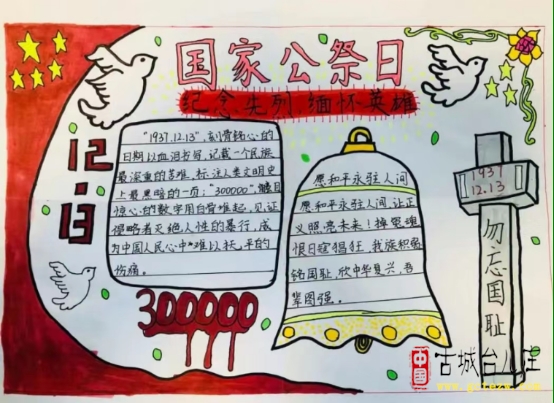 国家公祭日
纪念先列 缅怀英雄
12.13
"1937.12.13",刻骨铭心的
日期以血泪书写,记载一个民族
最深重的苦难,标注人类文明史
上最黑暗的一页;"300000",触目
惊心的数字用白骨堆起,见证
侵略者灭绝人性的暴行,成
为中国人民心中难以抚平的
伤痛。
300000
愿和平永驻人间
愿和平永驻人间,让正
义照亮未来!撞冤魂
恨日寇猖狂,我族积弱
铭国耻,欣中华复兴,吾
辈图强。
1937
12.13
勿忘国耻
中国
古城台儿庄